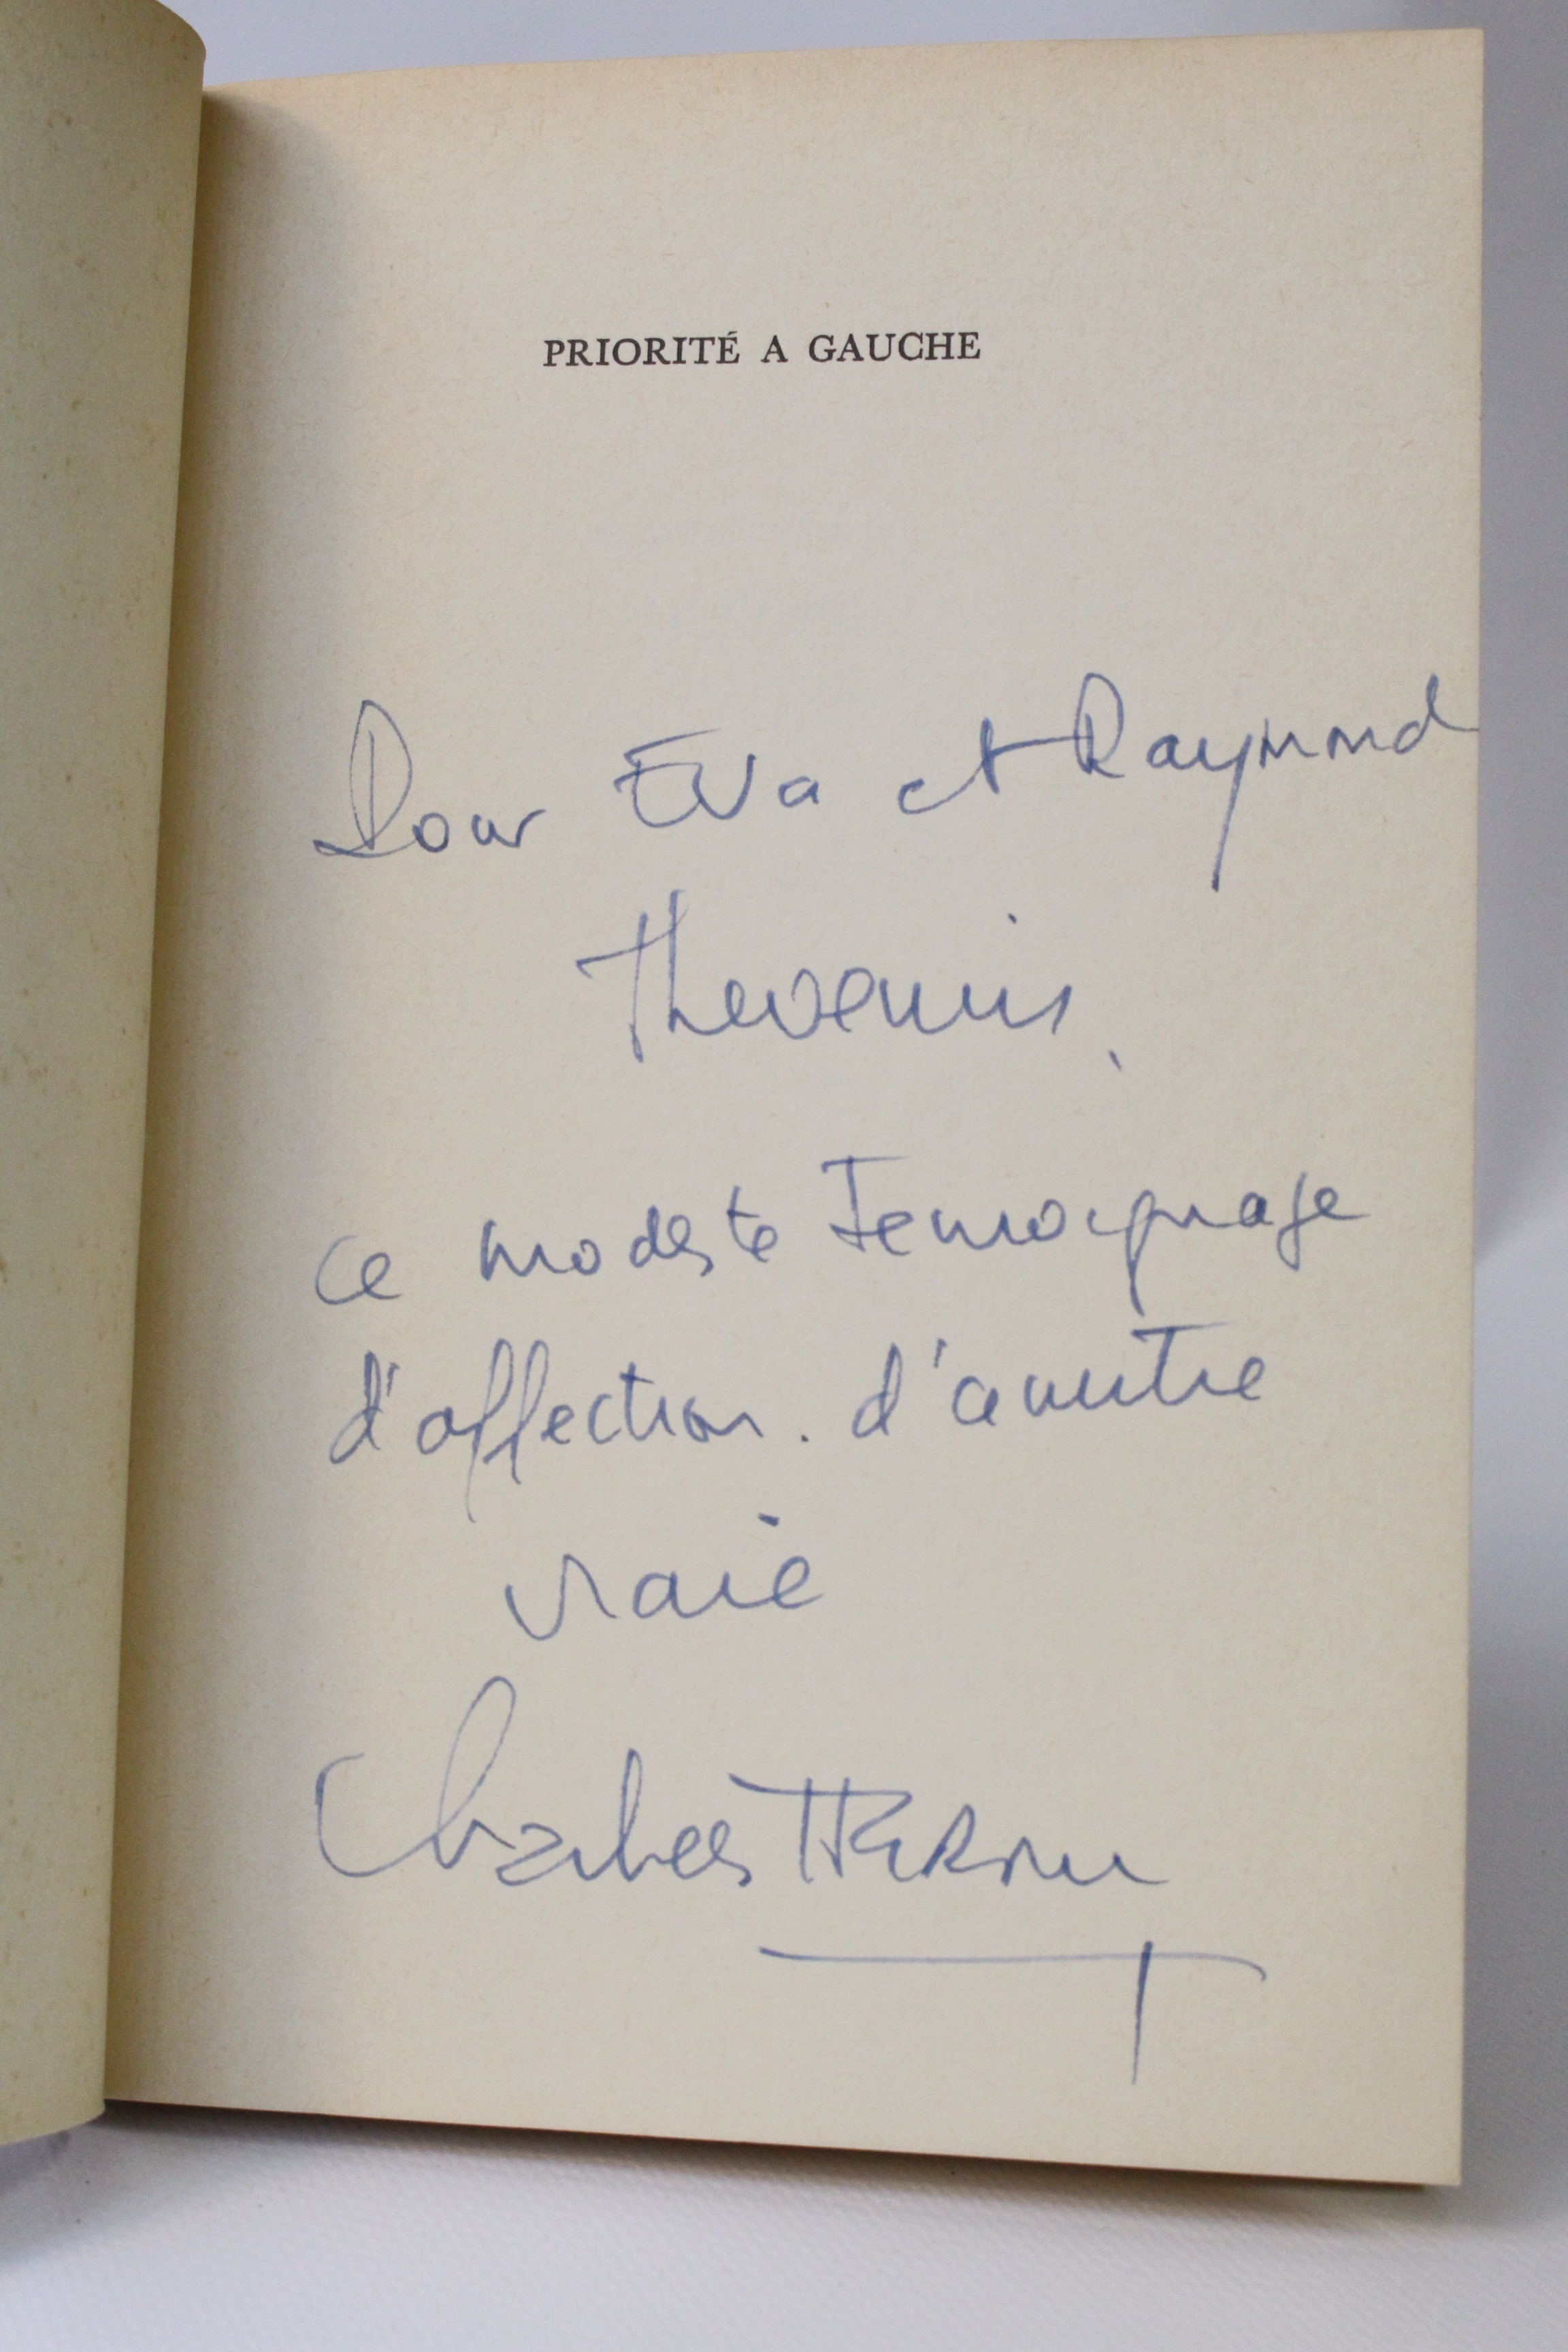 PRIORITÉ A GAUCHE
Pour Eva et Raymond
Thevenin,
ce modeste temoignage
d'affection. d'amitie
vraie
Charles Hernu